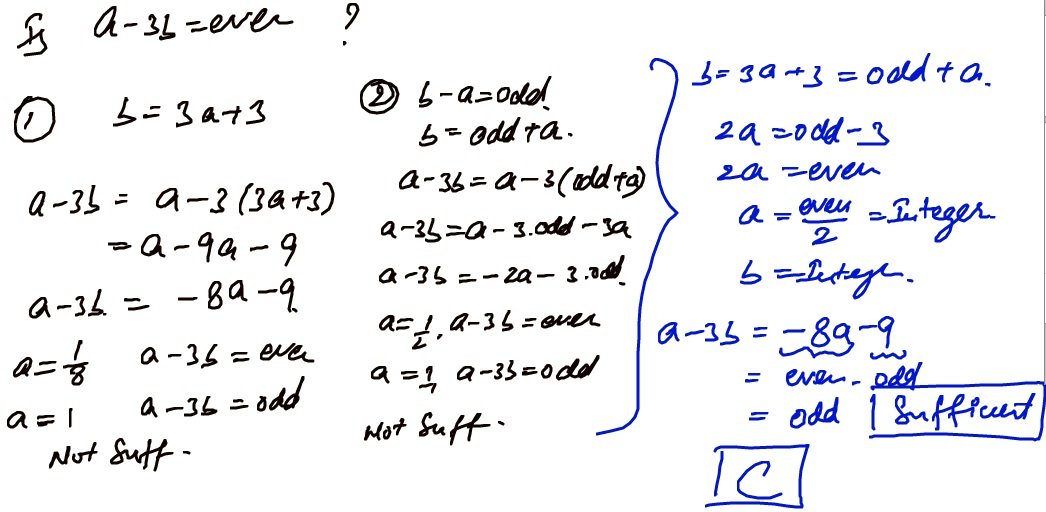 Is a-3b = even ?
① b = 3a+3
a-3b = a-3(3a+3)
= a-9a-9
a-3b = -8a-9
a=1/8 a-3b = even
a=1 a-3b = odd
Not Suff.
② b-a=odd.
b=odd+a.
a-3b=a-3(odd+a)
a-3b=a-3.odd-3a
a-3b=-2a-3.odd.
a=1/2, a-3b=even
a=1, a-3b=odd
Not Suff.
b=3a+3=odd+a.
2a=odd-3
2a=even
a=even/2=Integer.
b=Integer.
a-3b=-8a-9
= even-odd
= odd | Sufficient
C